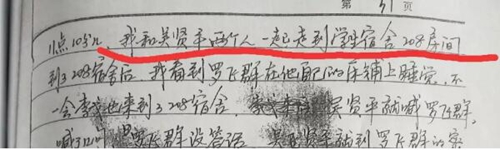 第 31 页
1点10分几 我和吴贤平两个人一起走到学生宿舍208房间
到了208宿舍后 我看到罗飞群在他配的床铺上睡觉,不
一会李 也来到了208宿舍. 吴贤平就喊罗飞群,
喊了几 罗飞群没答话 吴贤平就到罗飞群的